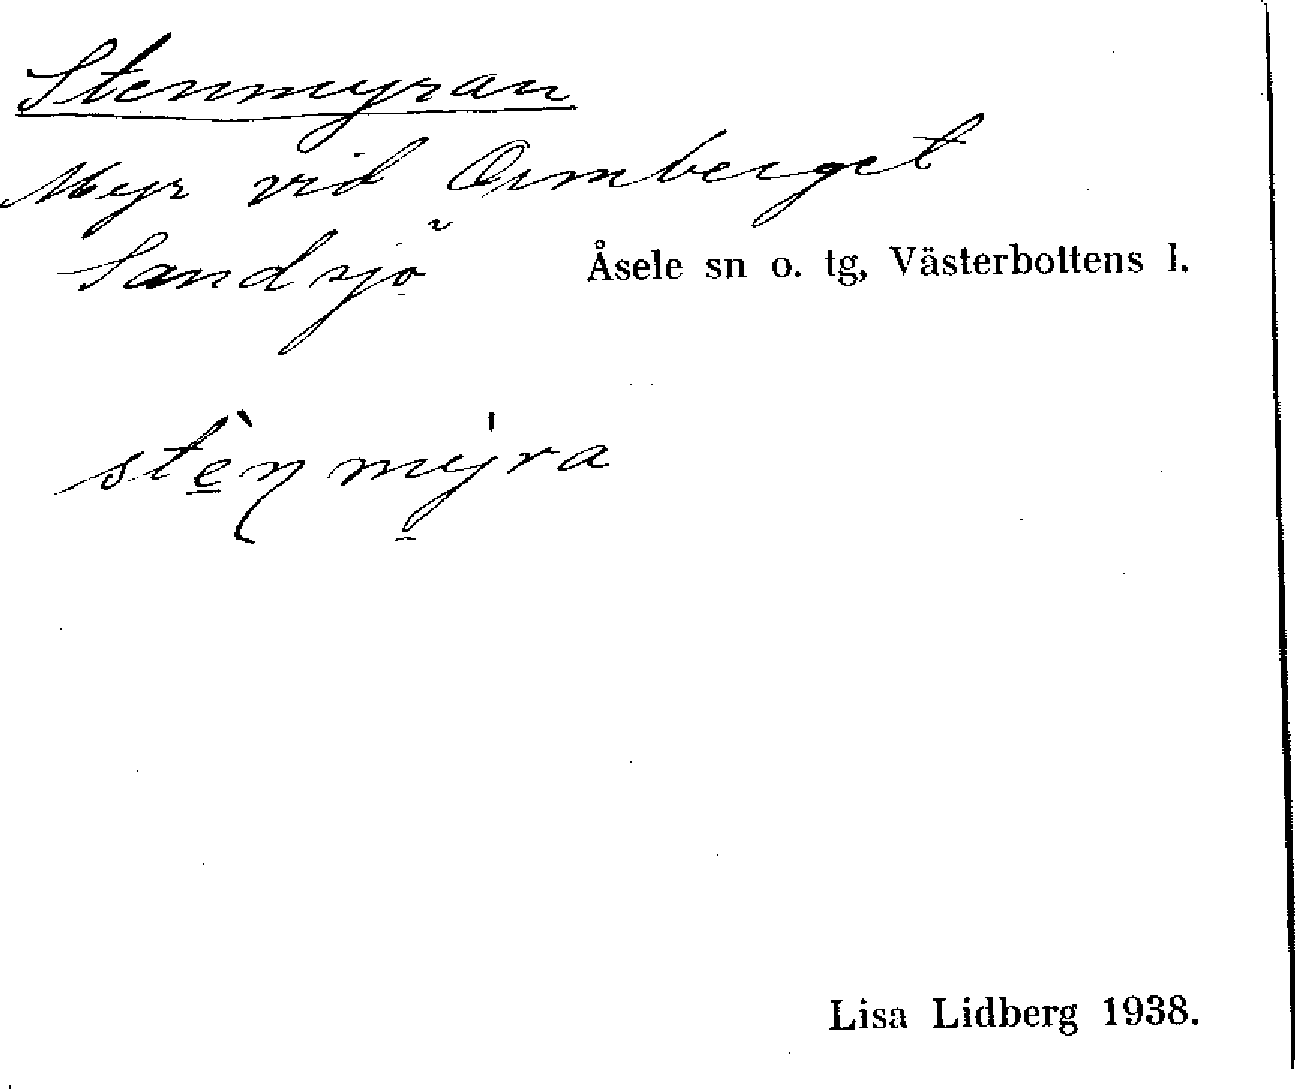 Stenmyran
Myr vid Ormberget
Sandsjö
Åsele sn o. tg, Västerbottens l.
stè̱ŋmy̱ra
Lisa Lidberg 1938.